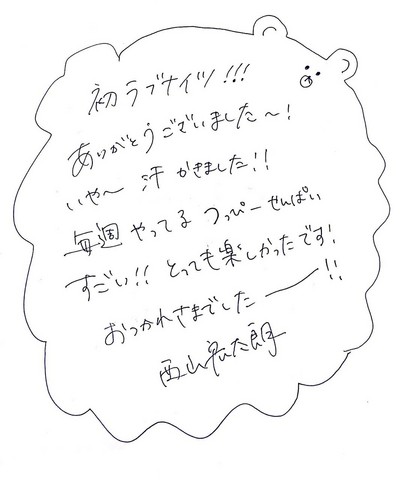 初ラブナイツ!!!
ありがとうございました〜!
いや〜 汗 かきました!!
毎週 やってる つっぴーせんぱい
すごい!! とっても楽しかったです!
おつかれさまでしたー!!
西山宏太朗